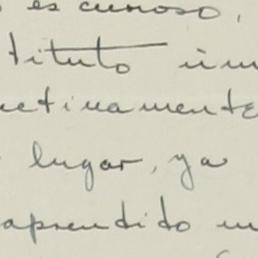 es curioso,
tituto úni
ctivamente
lugar, ya
aprendido